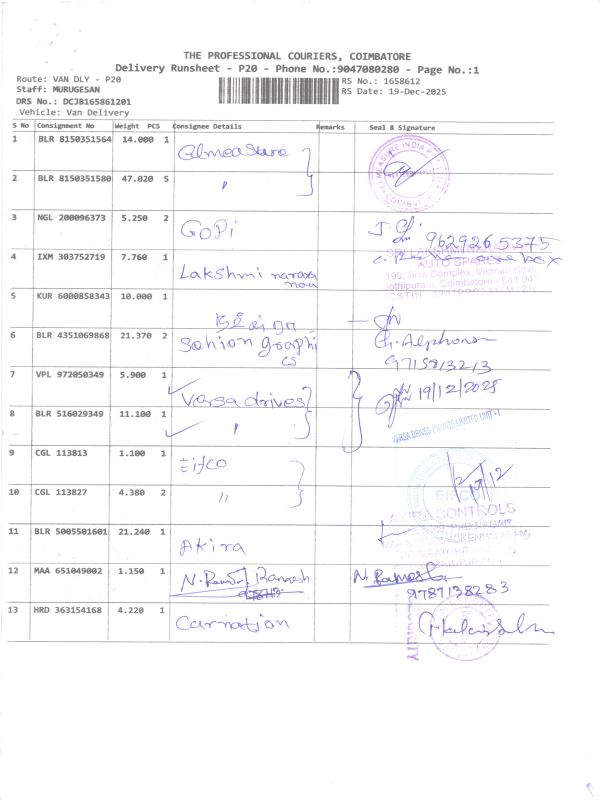 THE PROFESSIONAL COURIERS, COIMBATORE
Delivery Runsheet - P20 - Phone No.:9047080280 - Page No.:1
Route: VAN DLY - P20
RS No.: 1658612
Staff: MURUGESAN
RS Date: 19-Dec-2025
DRS No.: DCJB165861201
Vehicle: Van Delivery
S No Consignment No Weight PCS Consignee Details Remarks Seal & Signature
1 BLR 8150351564 14.000 1 Almeasure
2 BLR 8150351580 47.020 5 "
3 NGL 200096373 5.250 2 GOPi 9629265375
4 IXM 303752719 7.760 1 Lakshmi
AUTO SPARES
190, Siva Complex,
Coimbatore - 541
5 KUR 6000858343 10.000 1
6 BLR 4351069868 21.370 2 Sahion graphi
cs
Ch. Alphonsa
9715813213
7 VPL 972050349 5.900 1 Versa drives 19/12/2025
8 BLR 516029349 11.100 1 "
VERSA DRIVES PRIVATE LIMITED UNIT - 1
9 CGL 113813 1.100 1 Eifco
10 CGL 113827 4.380 2 "
AKIRA CONTROLS
11 BLR 5005501601 21.240 1 Akira
12 MAA 651049002 1.150 1 N. Ramesh
9787138283
13 HRD 363154168 4.220 1 Carnation